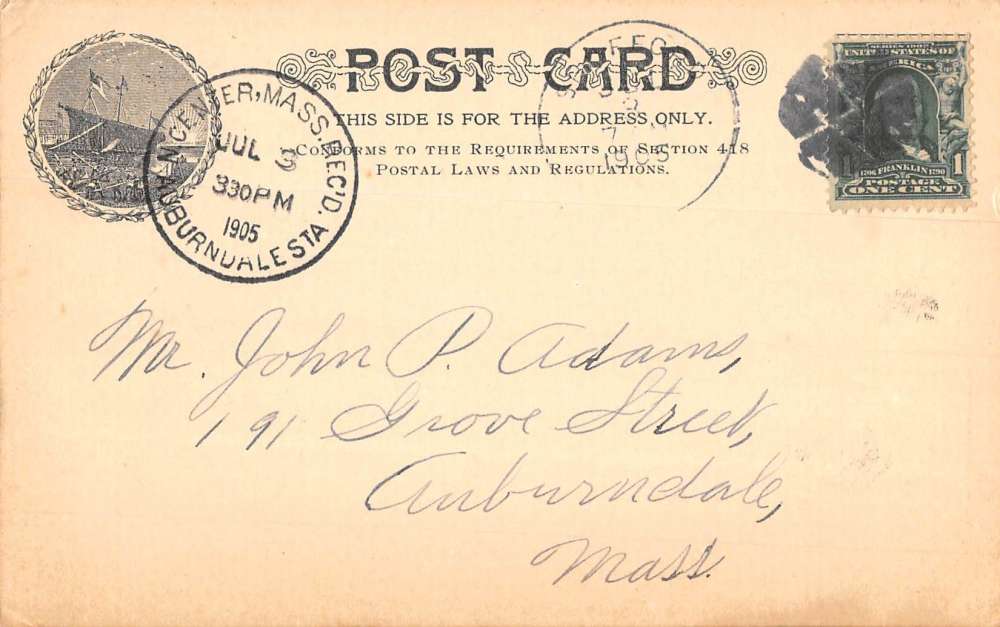 POST CARD
THIS SIDE IS FOR THE ADDRESS ONLY.
CONFORMS TO THE REQUIREMENTS OF SECTION 418
POSTAL LAWS AND REGULATIONS.
NEWTON CENTER, MASS. REC'D.
JUL 3
330 PM
1905
AUBURNDALE STA
1905
SERIES 1902
UNITED STATES OF
AMERICA
1 1
1706 FRANKLIN 1790
POSTAGE
ONE CENT
Mr. John P. Adams,
191 Grove Street,
Auburndale,
Mass.